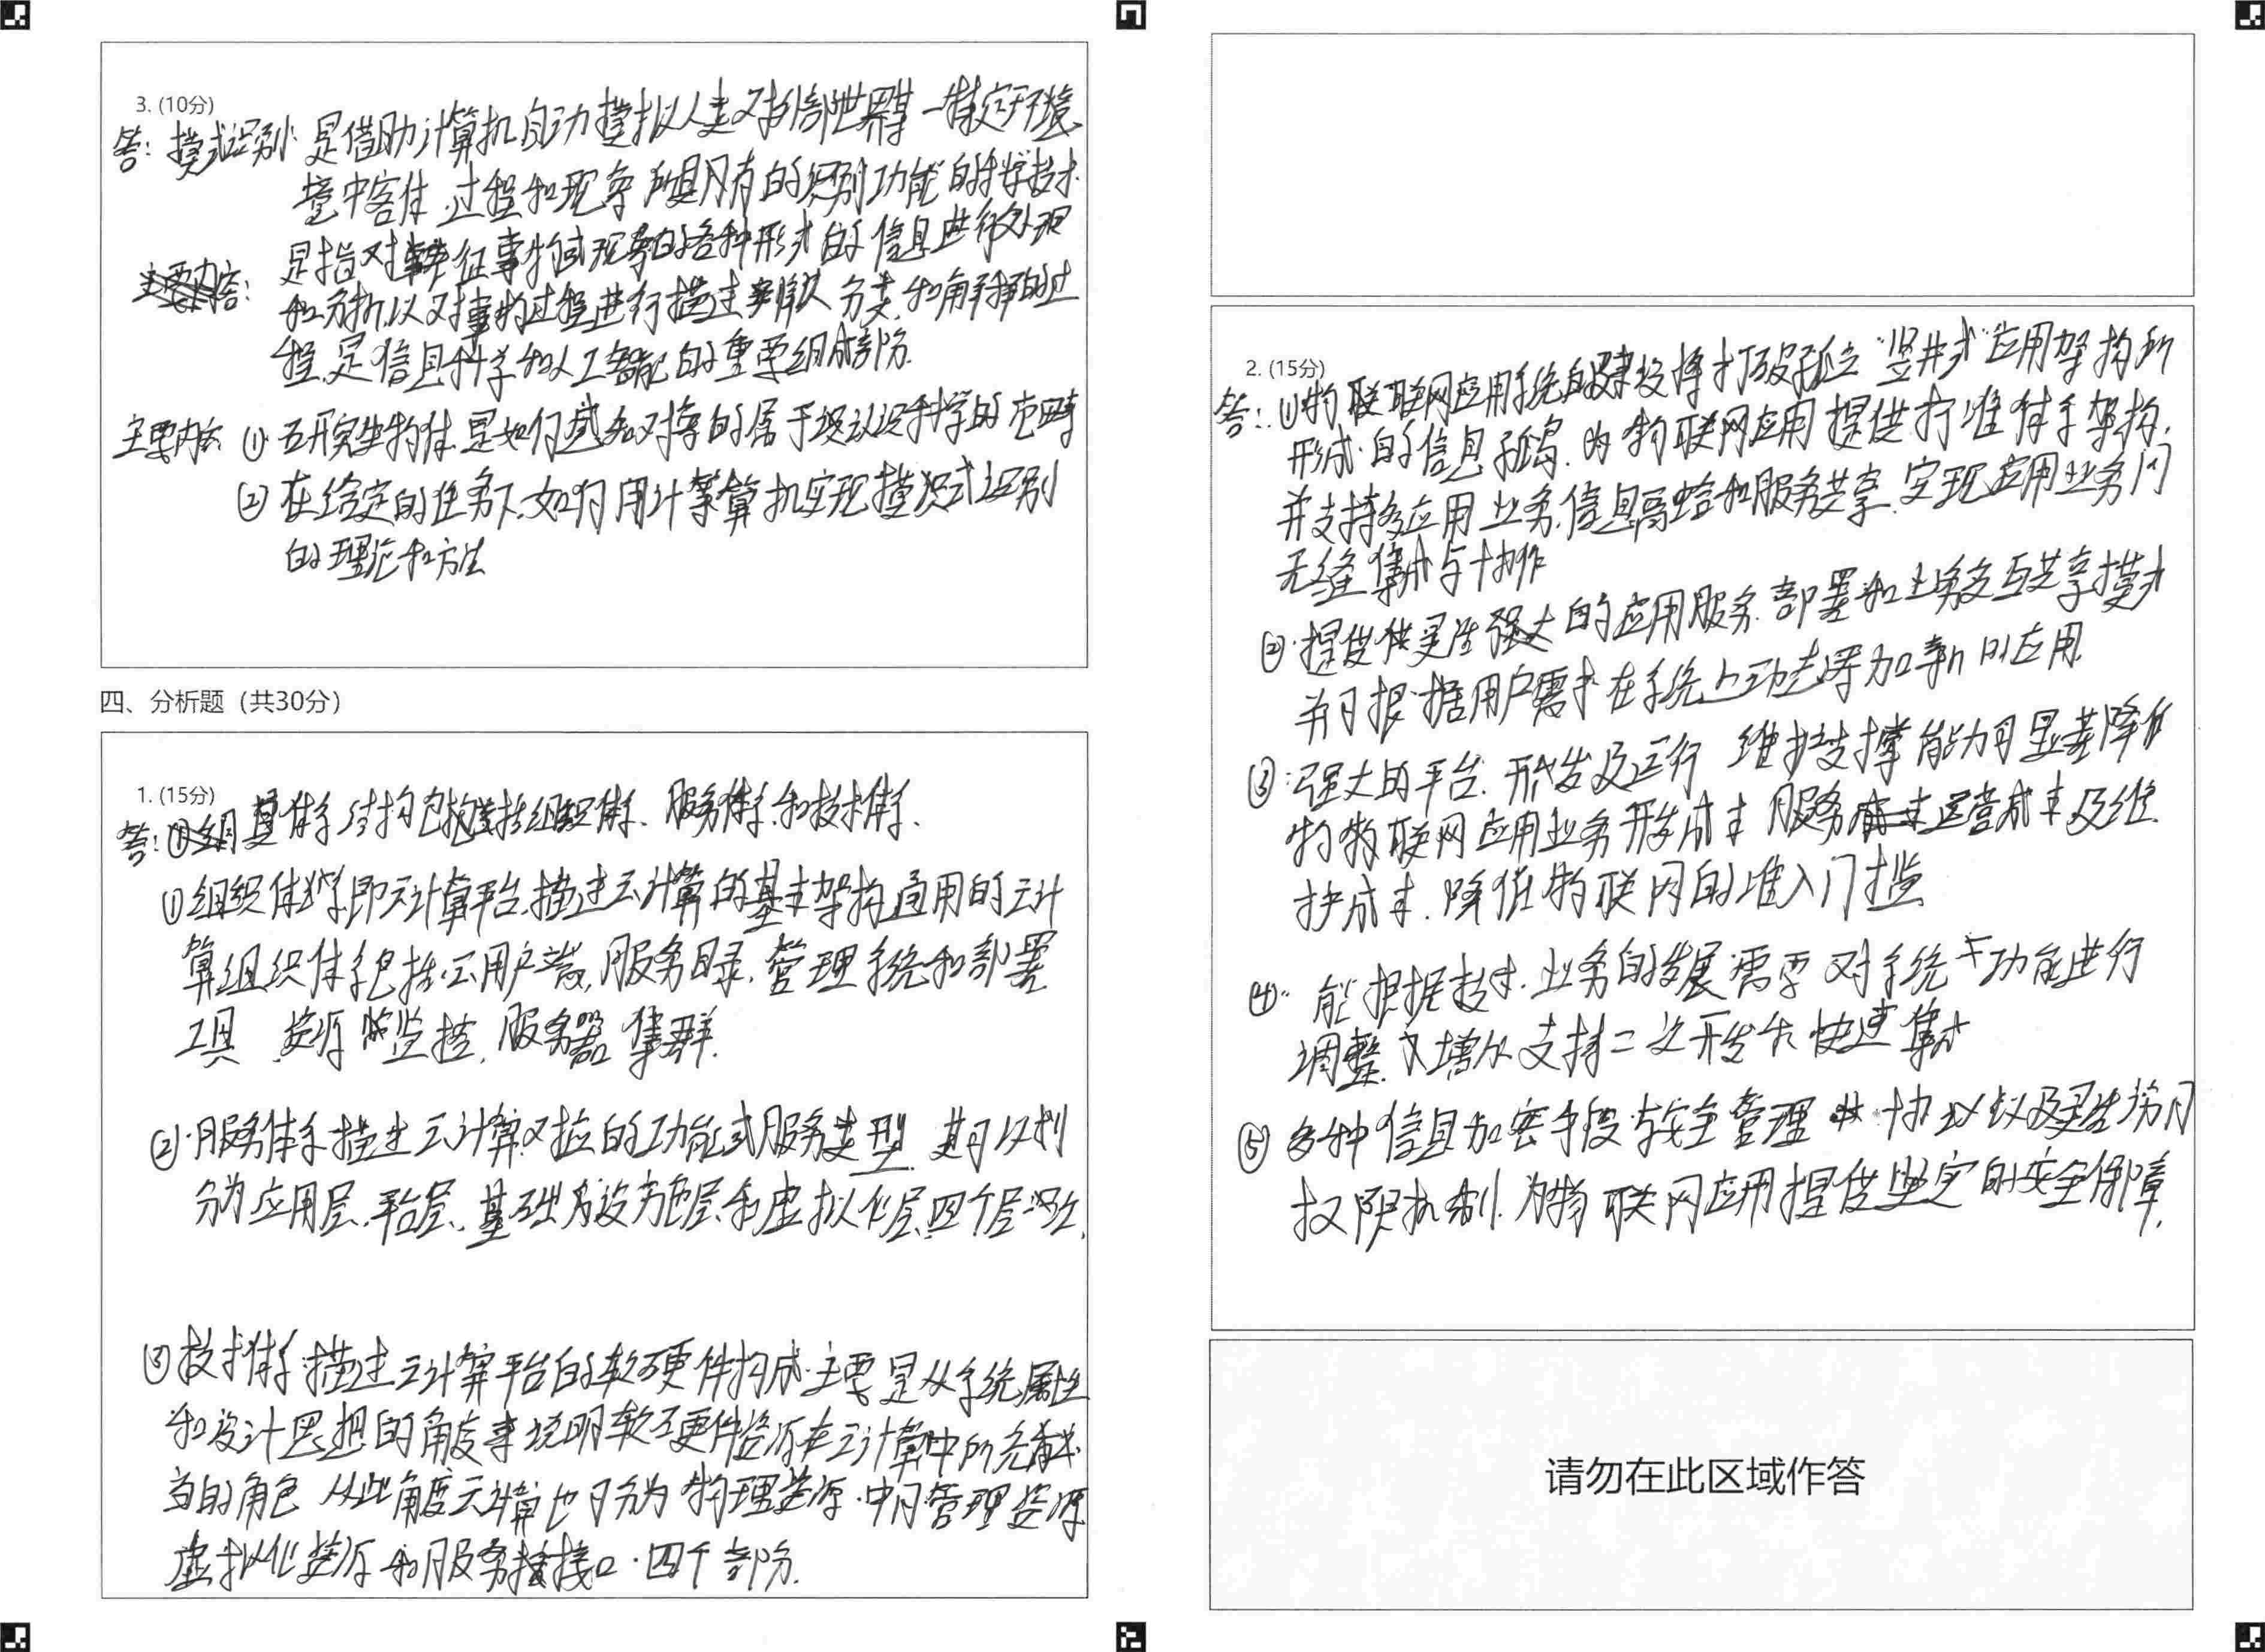 3. (10分)
答: 模式识别: 是借助计算机自动模拟人类对外部世界某一特定环境
境中客体、过程和现象所具有的识别功能的科学技术.
是指对表征事物或现象的各种形式的信息进行处理
和分析,以对事物过程进行描述 辨认 分类、和解释的过
程、是信息科学和人工智能的重要组成部分.
主要内容: ① 研究生物体是如何感知对象的属于认识科学的范畴
② 在给定的任务下,如何用计算机实现模式识别
的理论和方法
四、分析题（共30分）
1. (15分)
答: 其体系结构包括组织体系、服务体系和技术体系、
① 组织体系即云计算平台,描述云计算的基本架构通用的云计
算组织体系包括云用户端,服务目录、管理系统和部署
工具 资源监控、服务器集群.
② 服务体系描述云计算对应的功能或服务类型 其可以划
分为应用层、平台层、基础设施层和虚拟化层、四个层次、
③ 技术体系描述云计算平台的软硬件构成 主要是从系统属性
和设计思想的角度来说明软硬件资源在云计算中所充当
当的角色 从此角度云计算也可分为 物理资源、中间管理资源
虚拟化资源和服务接口 四个部分.
2. (15分)
答: ① 物联网应用系统的建设将打破孤立“竖井式”应用架构所
形成的信息孤岛、为物联网应用提供标准体系架构,
并支持多应用业务、信息融合和服务共享、实现应用业务间
无缝集成与协作
② 提供灵活强大的应用服务部署和业务交互共享模式
并可根据用户需求在系统上动态添加新的应用.
③ 强大的平台、开发及运行 维护支撑能力可显著降低
物联网应用业务开发成本 服务运营成本及维
护成本、降低物联网的准入门槛
④ 能根据技术、业务的发展需要对系统功能进行
调整 支持二次开发 快速集成
⑤ 多种信息加密手段与安全管理协议以及灵活访问
权限机制、为物联网应用提供坚定的安全保障.
请勿在此区域作答